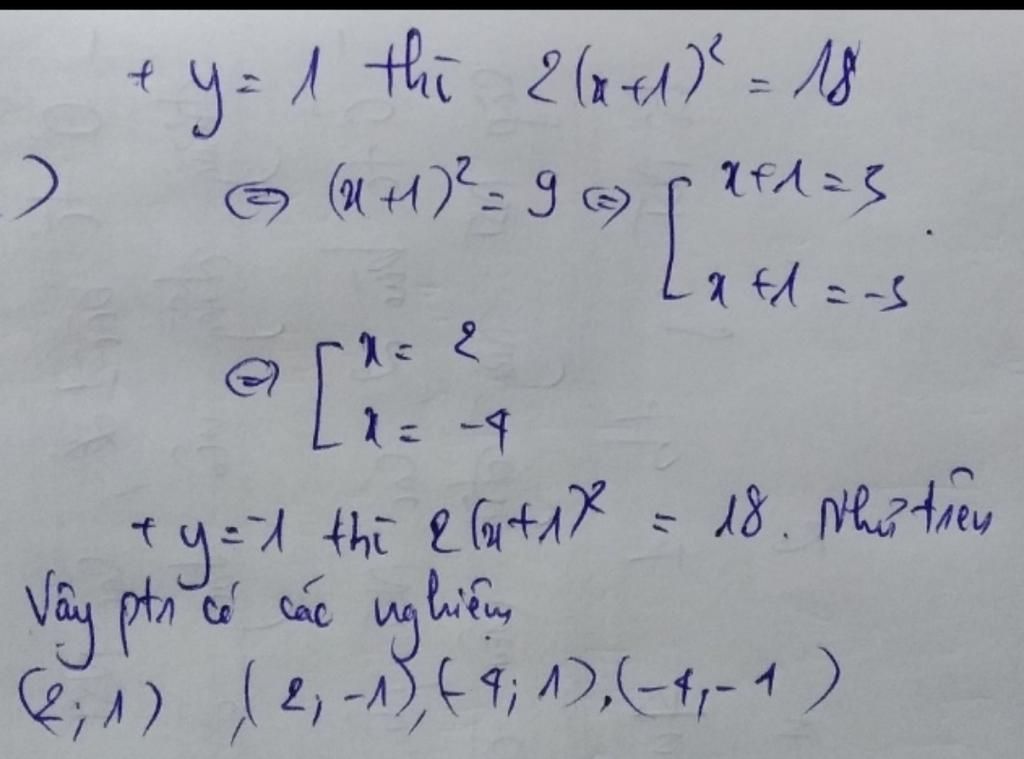 + y = 1 thì 2(x+1)² = 18
) ⇔ (x+1)² = 9 ⇔ [ x+1 = 3
x+1 = -3
⇔ [ x = 2
x = -4
+ y = -1 thì 2(x+1)² = 18. Như trên
Vậy ptr có các nghiệm
(2; 1), (2; -1), (-4; 1), (-4, -1)